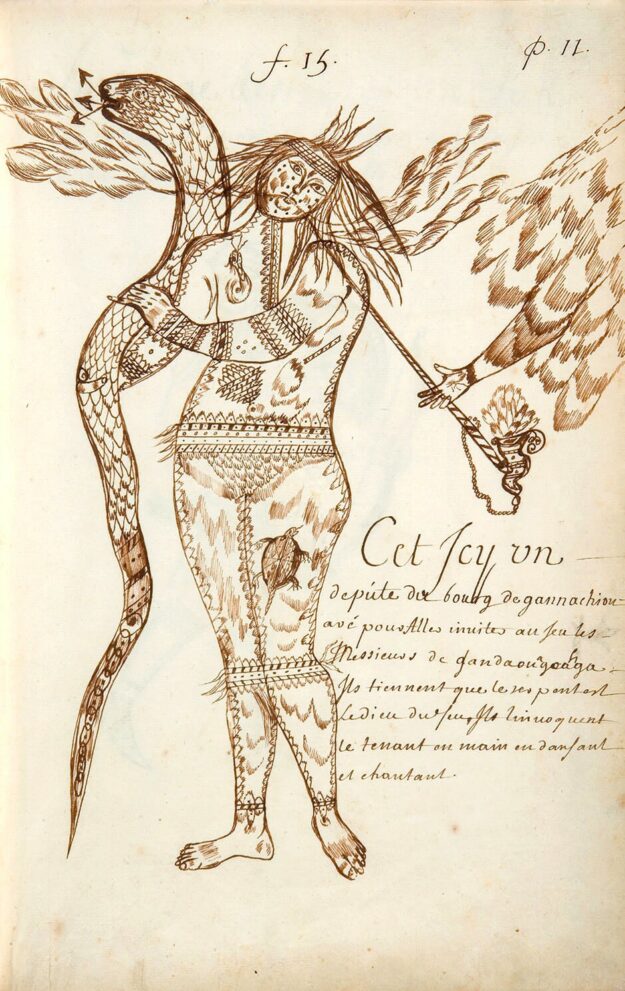 f. 15.
p. 11.
Cet Icy un
depúte du bourg de gannachiou
avé pour aller inviter au jeu les
Messieurs de gandaouȣaga.
Ils tiennent que le serpent est
Le dieu du feu, Ils linvoquent
le tenant en main en dansant
et chantant.